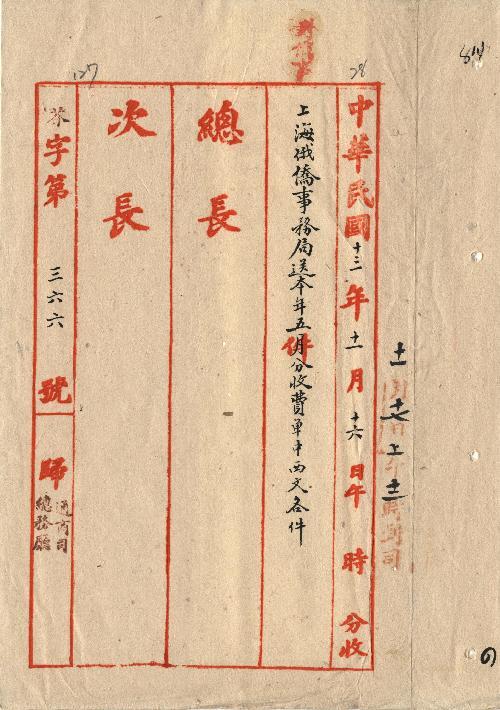 中華民國十三年十一月十六日午時分收
上海俄僑事務局送本年五月分收費單中西文各件
件
總長
次長
茶字第三六六號歸通商司
總務廳
127
28